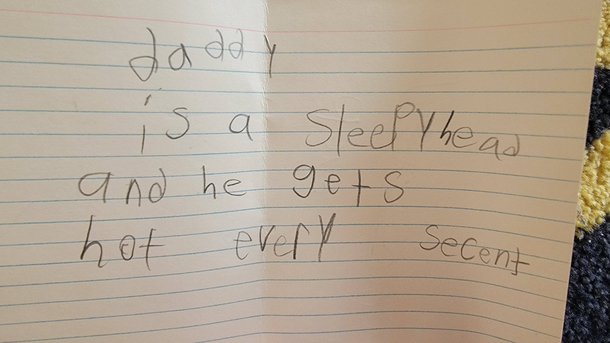 daddy
is a sleepyhead
and he gets
hot every secent